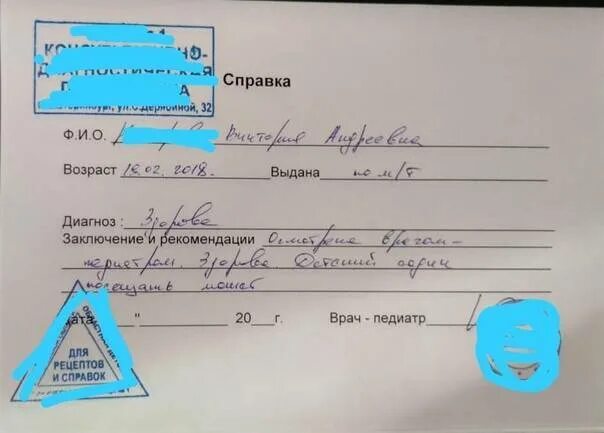 КОНСУЛЬТАТИВНО-
ДИАГНОСТИЧЕСКАЯ
ул.С.Дерябиной, 32
Справка
Ф.И.О. Виктория Андреевна
Возраст 19.02.2018. Выдана по м/т
Диагноз : Здорова
Заключение и рекомендации Осмотрена врачом-
педиатром. Здорова. Детский садик
посещать может
Дата "___" 20___г. Врач - педиатр
ОБЛАСТНАЯ ДЕТ
ДЛЯ
РЕЦЕПТОВ
И СПРАВОК